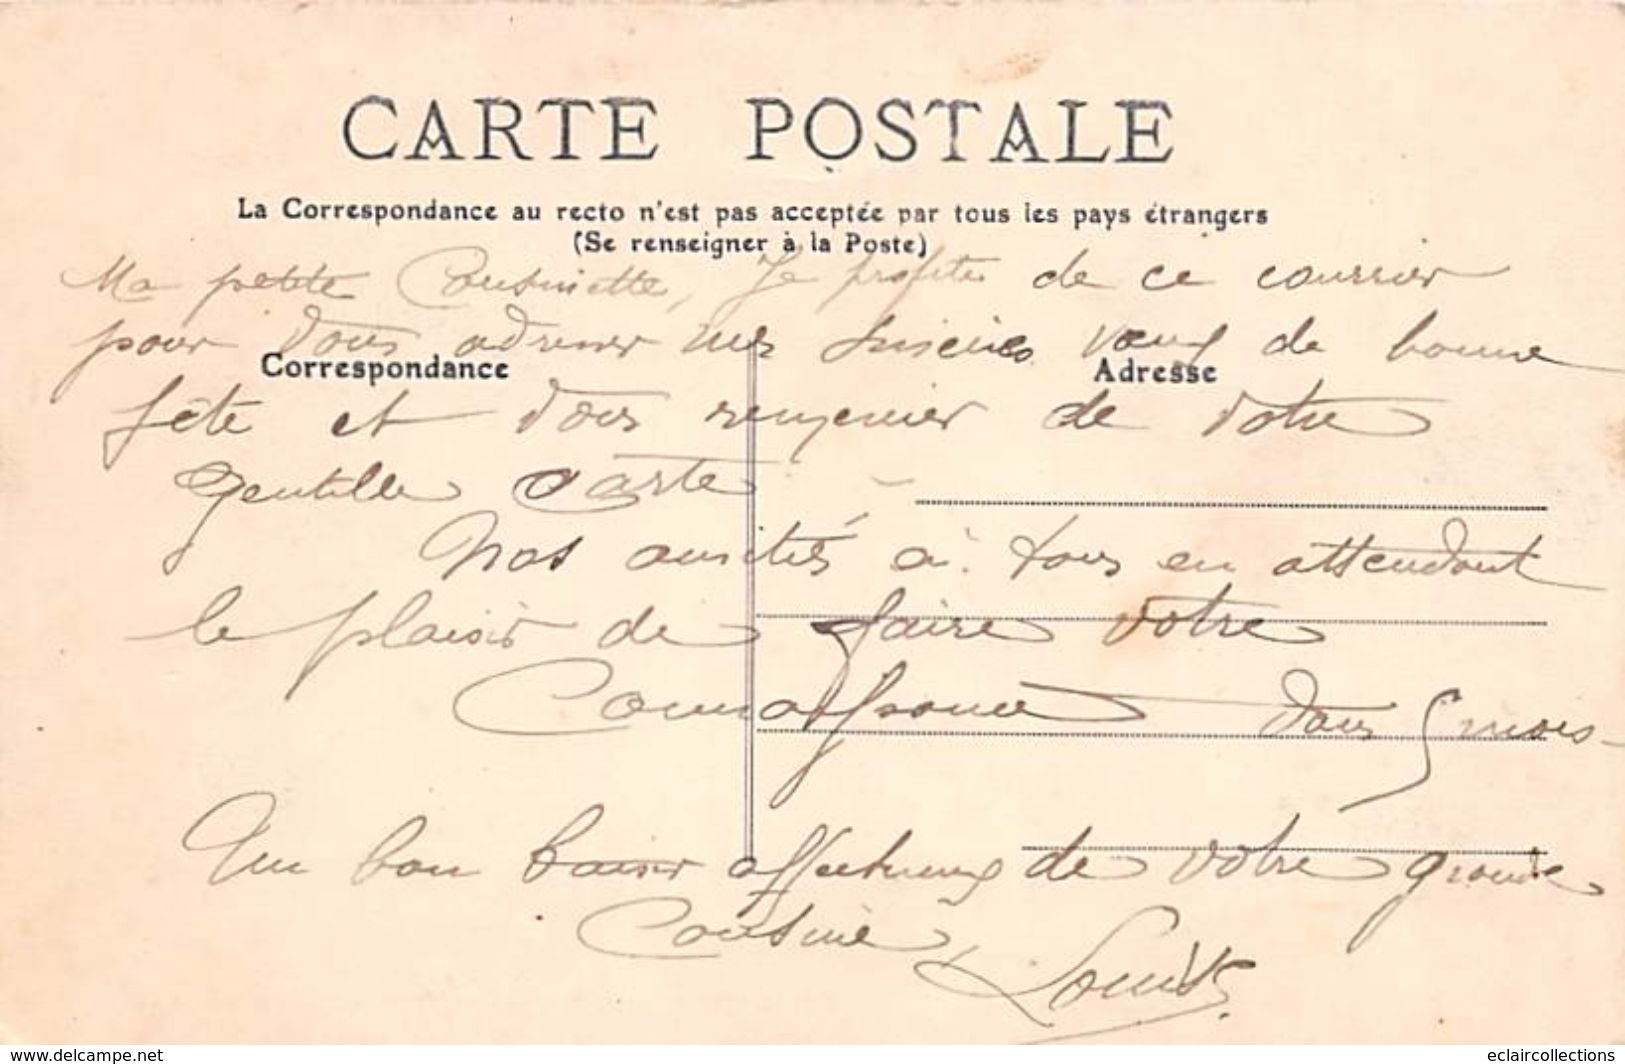 CARTE POSTALE
La Correspondance au recto n'est pas acceptée par tous les pays étrangers
(Se renseigner à la Poste)
Ma petite Cousinette, Je profite de ce courrier
pour vous adresser mes sincères vœux de bonne
Correspondance
Adresse
fête et vous remercier de votre
gentille carte
Nos amitiés à tous en attendant
le plaisir de faire votre
Connaissance dans 5 mois
Un bon baiser affectueux de votre grande
Cousine